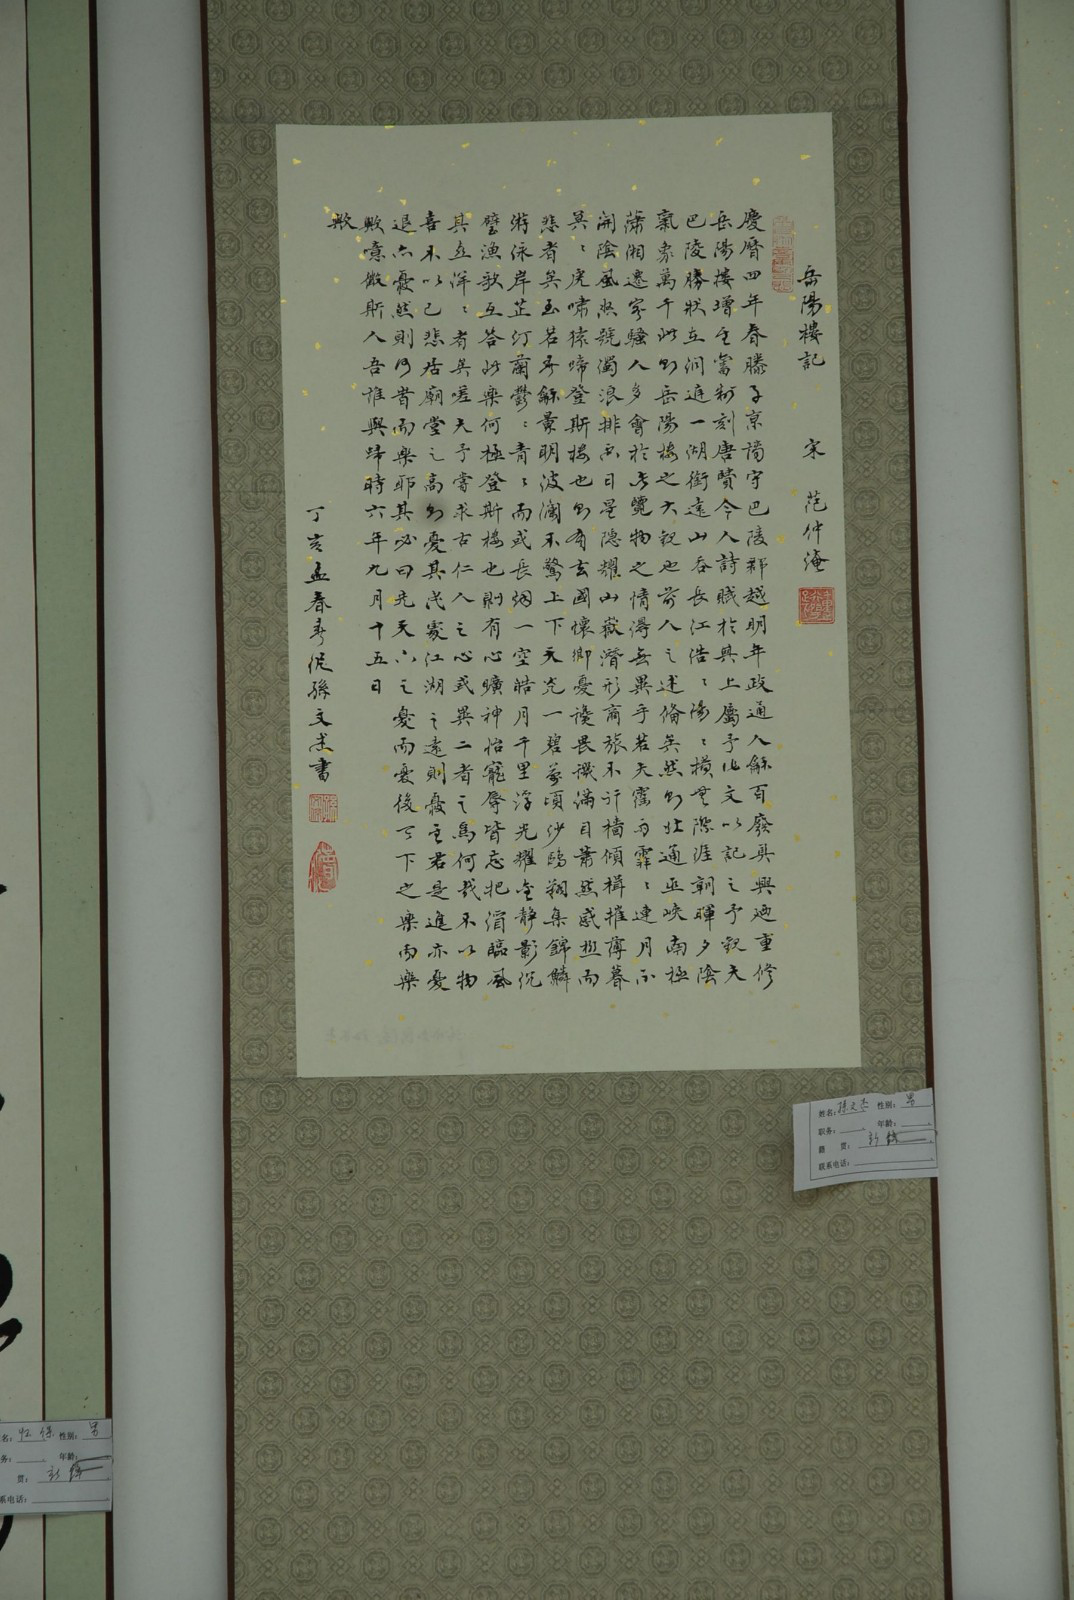 岳陽樓記 宋 范仲淹
慶曆四年春滕子京謫守巴陵郡越明年政通人龢百廢具興廼重修
岳陽樓增其舊制刻唐賢今人詩賦於其上屬予作文以記之予觀夫
巴陵勝狀在洞庭一湖銜遠山吞長江浩〻湯〻橫無際涯朝暉夕陰
氣象萬千此則岳陽樓之大觀也前人之述備矣然則北通巫峽南極
瀟湘遷客騷人多會於此覽物之情得無異乎若夫霪雨霏〻連月不
開陰風怒號濁浪排空日星隱耀山嶽潛形商旅不行檣傾楫摧薄暮
冥〻虎嘯猿啼登斯樓也則有去國懷鄉憂讒畏譏滿目蕭然感極而
悲者矣至若春龢景明波瀾不驚上下天光一碧萬頃沙鷗翔集錦鱗
游泳岸芷汀蘭鬱〻青〻而或長烟一空皓月千里浮光耀金靜影沉
璧漁歌互答此樂何極登斯樓也則有心曠神怡寵辱皆忘把酒臨風
其喜洋〻者矣嗟夫予嘗求古仁人之心或異二者之為何哉不以物
喜不以己悲居廟堂之高則憂其民處江湖之遠則憂其君是進亦憂
退亦憂然則何時而樂耶其必曰先天下之憂而憂後天下之樂而樂
歟噫微斯人吾誰與歸時六年九月十五日
歟
丁亥孟春 孫文杰書
姓名：孫文杰 性别：男
职务： 年龄：
籍 贯：
联系电话：
名： 性别：男
务： 年龄：
贯：
系电话：